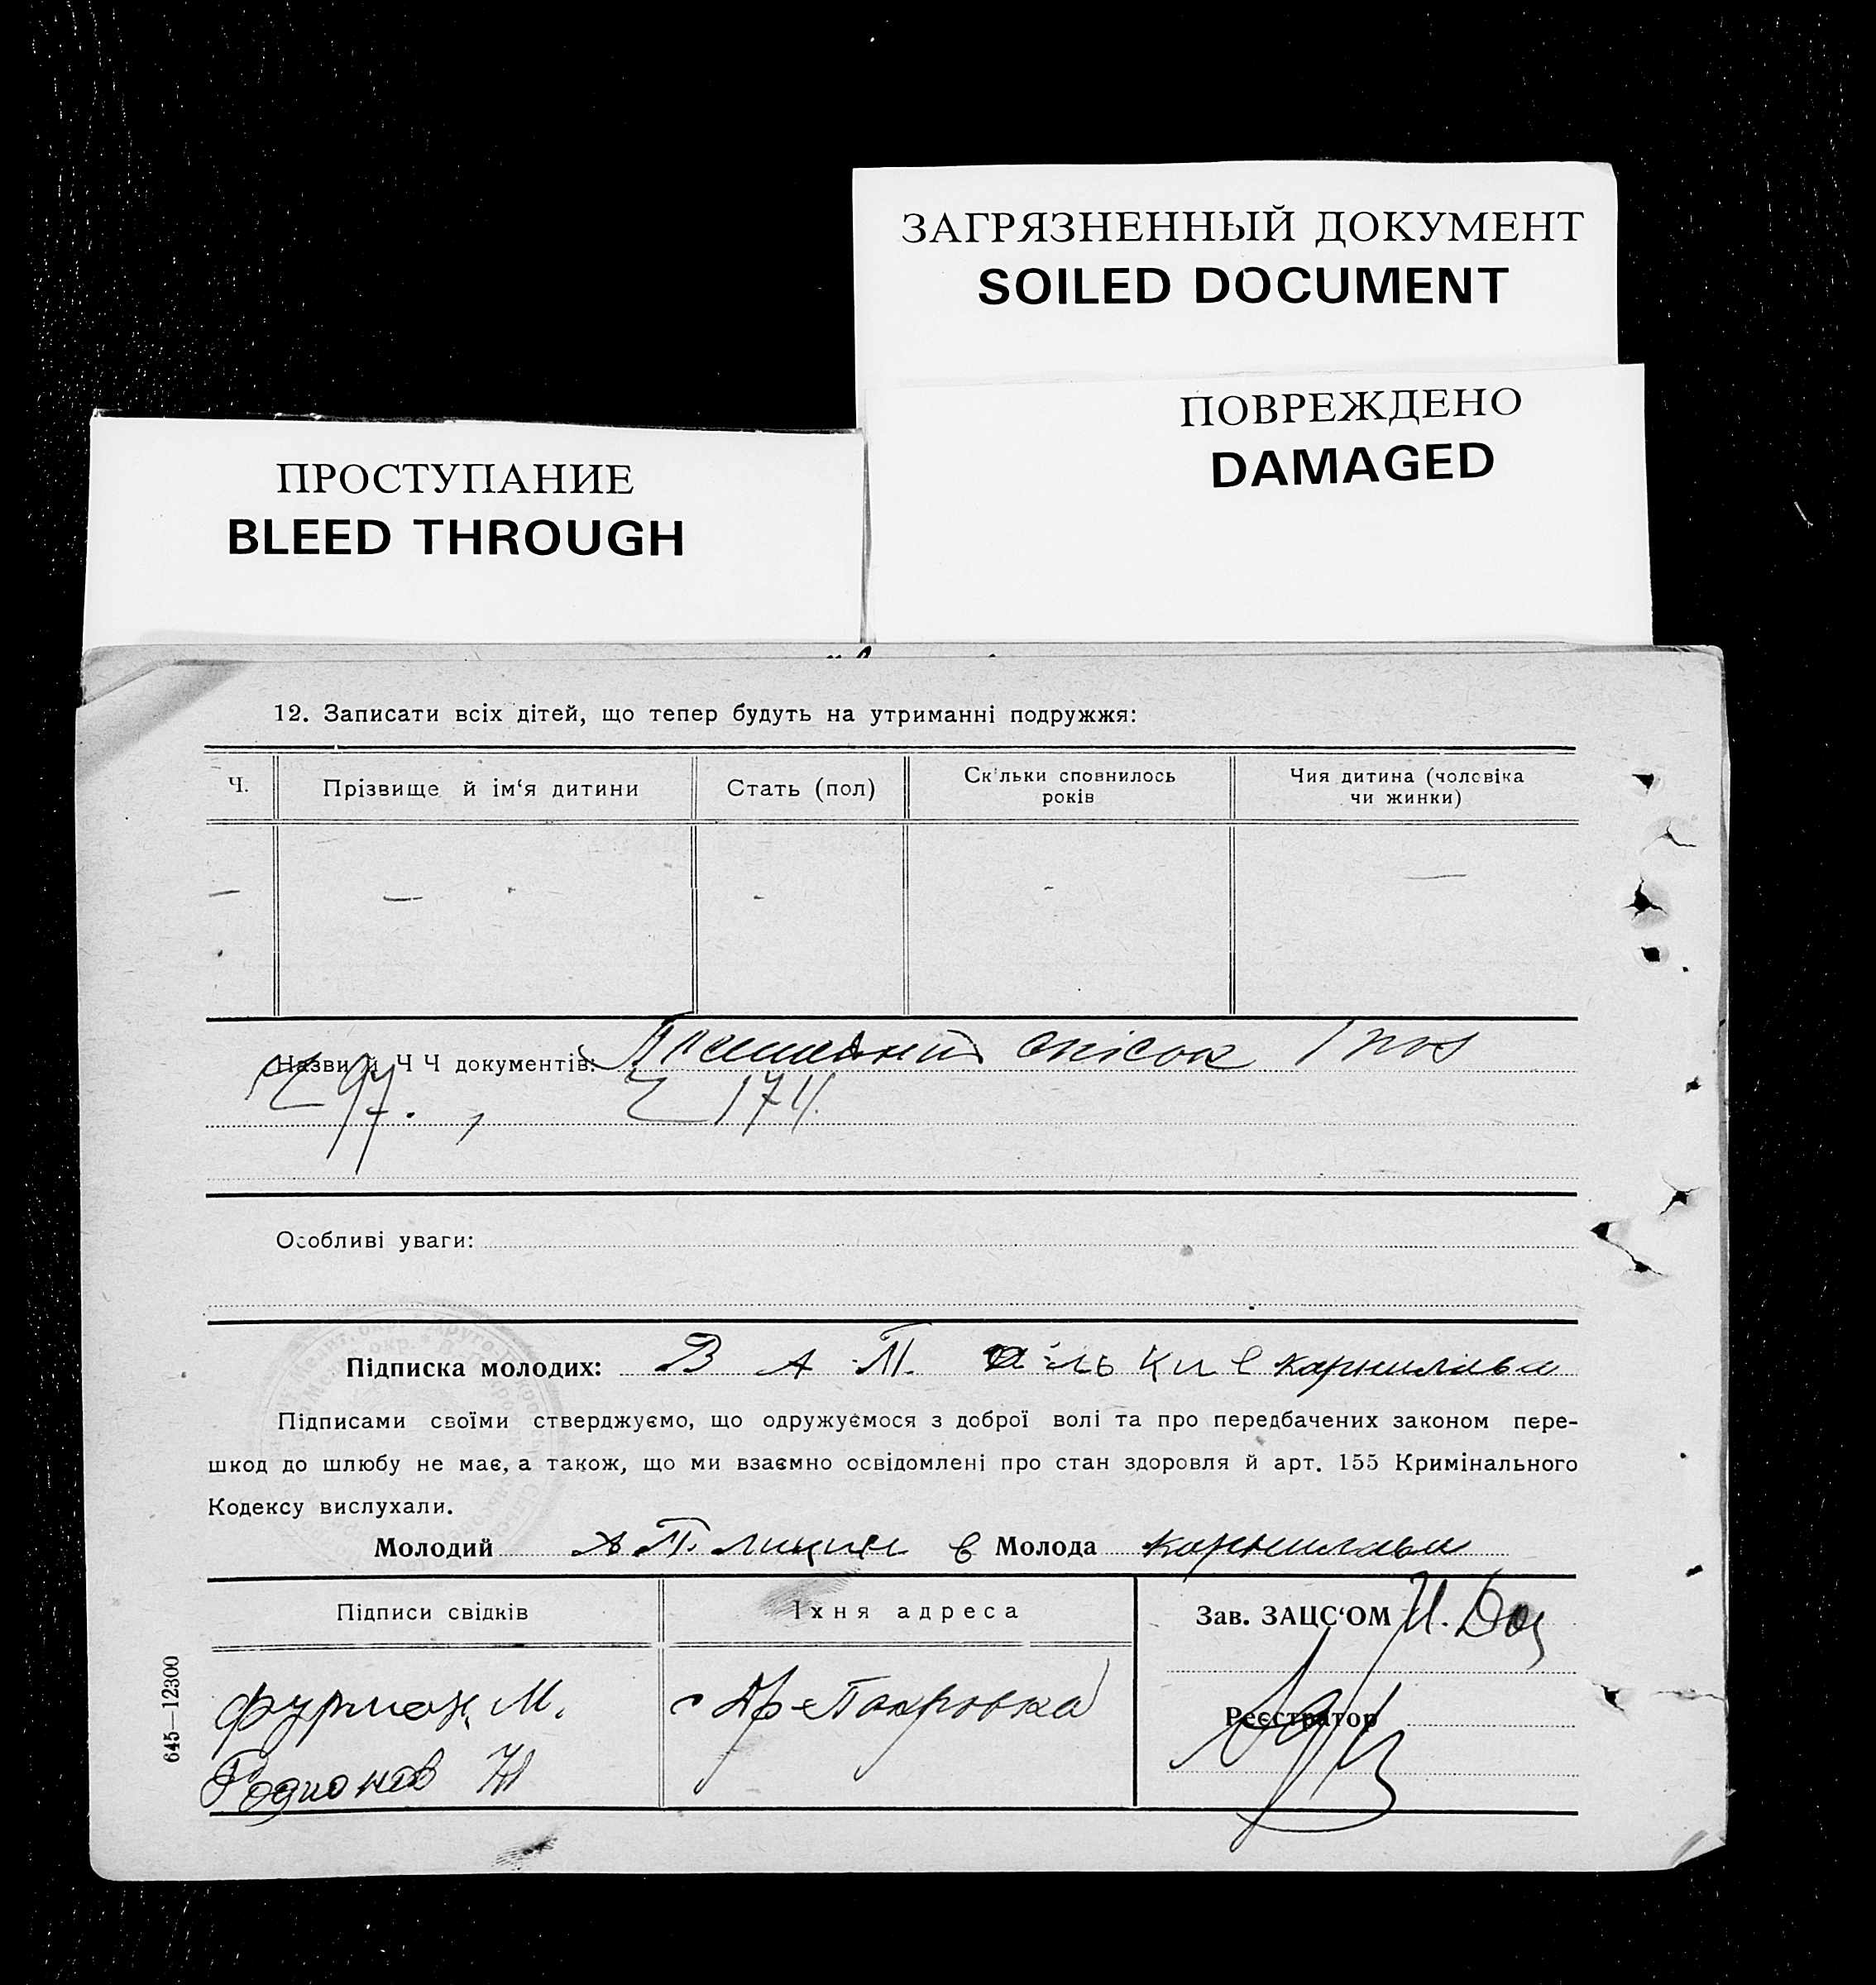 ЗАГРЯЗНЕННЫЙ ДОКУМЕНТ
SOILED DOCUMENT
ПОВРЕЖДЕНО
DAMAGED
ПРОСТУПАНИЕ
BLEED THROUGH
12. Записати всіх дітей, що тепер будуть на утриманні подружжя:
Ч.
Прізвище й ім‘я дитини
Стать (пол)
Скільки сповнилось
років
Чия дитина (чоловіка
чи жинки)
Назви й Ч Ч документів: список
97. , 174
Особливі уваги:
Підписка молодих: В А П.
Підписами своїми стверджуємо, що одружуємося з доброї волі та про передбачених законом пере-
шкод до шлюбу не має, а також, що ми взаємно освідомлені про стан здоровля й арт. 155 Кримінального
Кодексу вислухали.
Молодий Молода
Підписи свідків
Їхня адреса
Зав. ЗАЦС‘ОМ И.
Фурман М.
Родионов
с Кр-Покровка
Реєстратор
645—12300